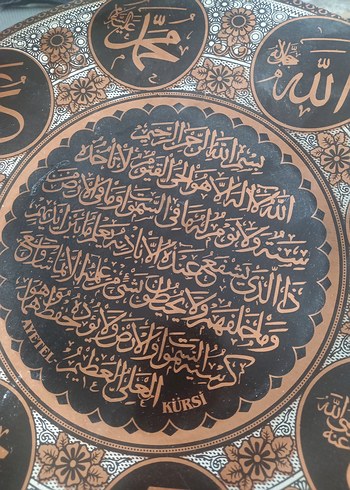 الله
جل جلاله
محمد
بسم الله الرحمن الرحيم
الله لا اله الا هو الحي القيوم لا تاخذه
سنة ولا نوم له ما في السموات وما في الارض من
ذا الذي يشفع عنده الا باذنه يعلم ما بين ايديهم
وما خلفهم ولا يحيطون بشئ من علمه الا بما شاء وسع
كرسيه السموات والارض ولا يؤده حفظهما وهو
العلي العظيم
AYETEL
KÜRSİ